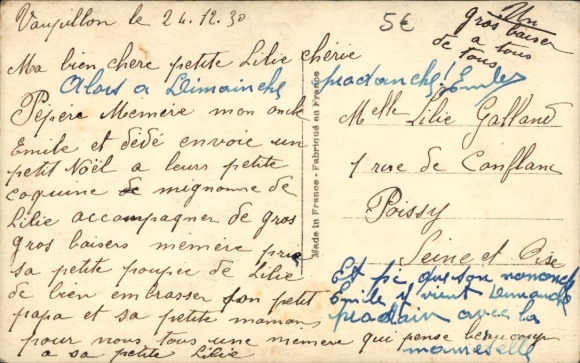 Vaupillon le 24.12.30
5€
Un
gros baiser
a tous
de tous
Ma bien chere petite Lilie chérie
Alors a Dimainche prochanche! Emile
Pépère Mémère mon oncle
Emile et dédé envoie un
petit Noël a leurs petite
coquine de mignonne de
Lilie accompagner de gros
gros baisers mémère prie
sa petite poupée de Lilie
de bien embrasser son petit
papa et sa petite maman
pour nous tous une memere qui pense beaucoup
a sa petite Lilie
Made in France - Fabriqué en France
Melle Lilie Galland
1 rue de Conflans
Poissy
Seine et Oise
Et pi que son
Emile y vient Dimanche
prochain avec la
mameselle